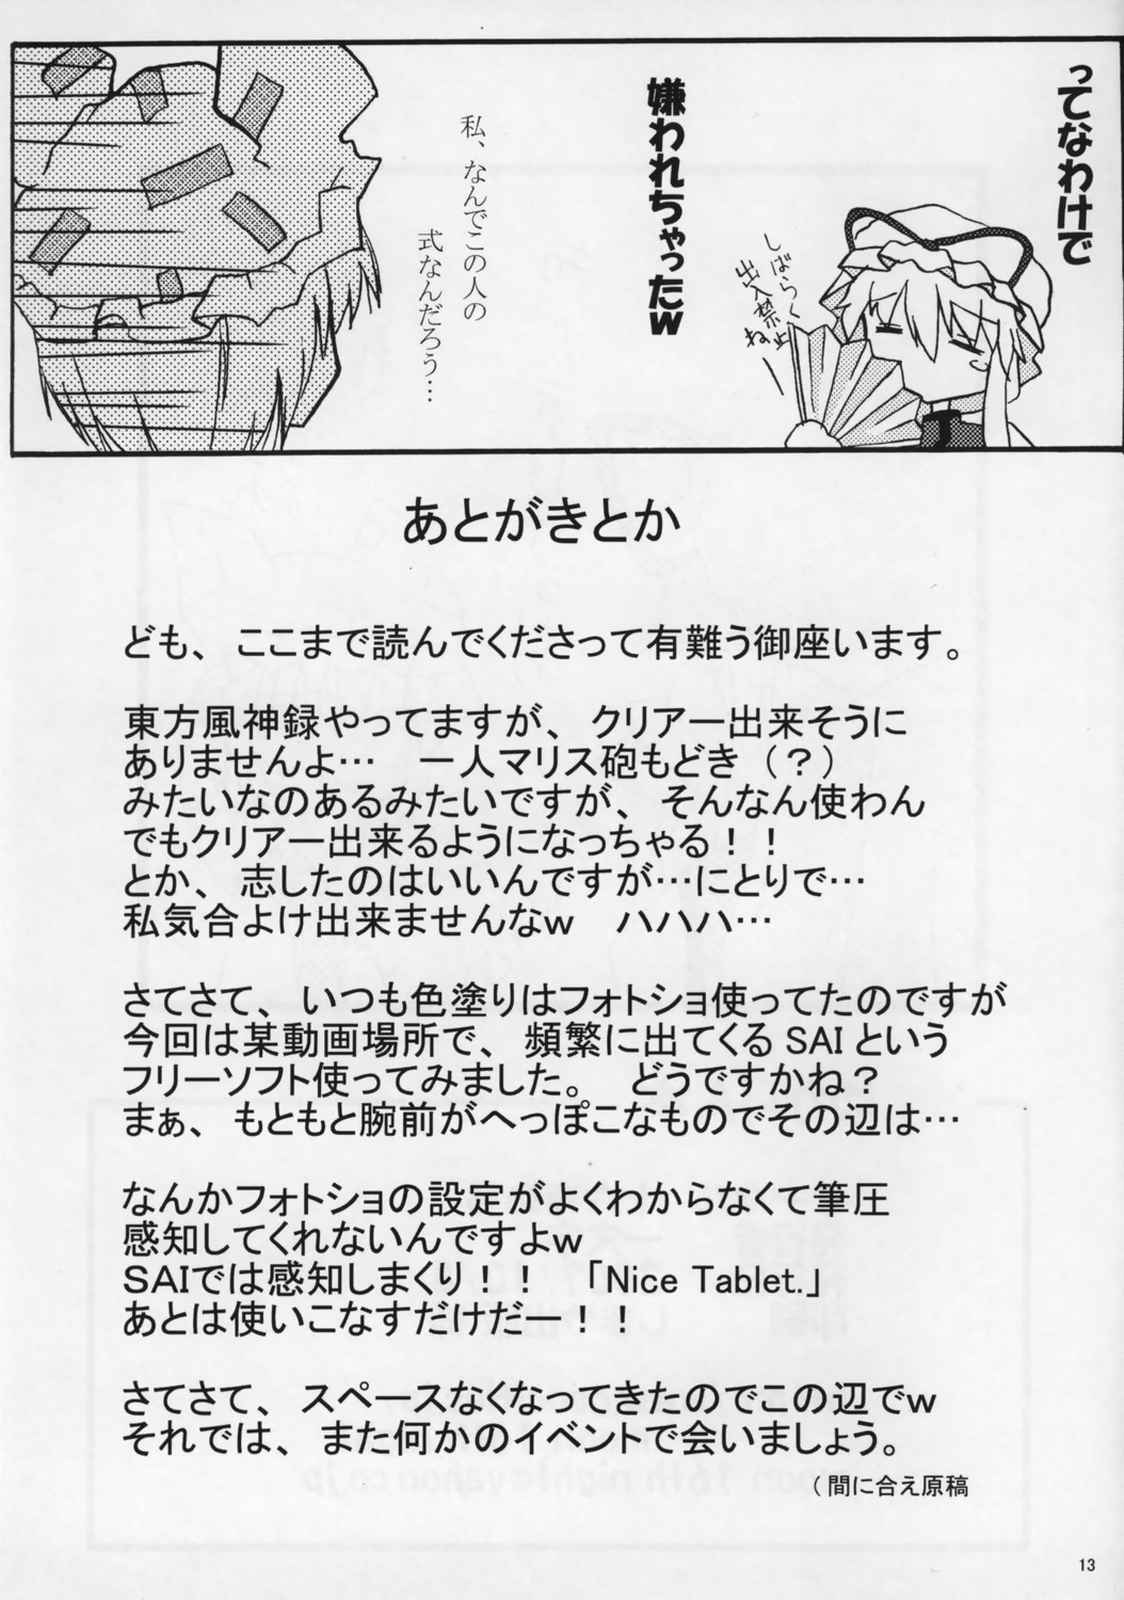 ってなわけで
嫌われちゃったｗ
しばらく
出入禁止
ねー
私、なんでこの人の
式なんだろう…
あとがきとか
ども、ここまで読んでくださって有難う御座います。
東方風神録やってますが、クリアー出来そうに
ありませんよ…　一人マリス砲もどき（？）
みたいなのあるみたいですが、そんなん使わん
でもクリアー出来るようになっちゃる！！
とか、志したのはいいんですが…にとりで…
私気合よけ出来ませんなｗ　ハハハ…
さてさて、いつも色塗りはフォトショ使ってたのですが
今回は某動画場所で、頻繁に出てくる SAI という
フリーソフト使ってみました。　どうですかね？
まぁ、もともと腕前がへっぽこなものでその辺は…
なんかフォトショの設定がよくわからなくて筆圧
感知してくれないんですよｗ
ＳＡＩでは感知しまくり！！　「Nice Tablet.」
あとは使いこなすだけだー！！
さてさて、スペースなくなってきたのでこの辺でｗ
それでは、また何かのイベントで会いましょう。
（間に合え原稿
13